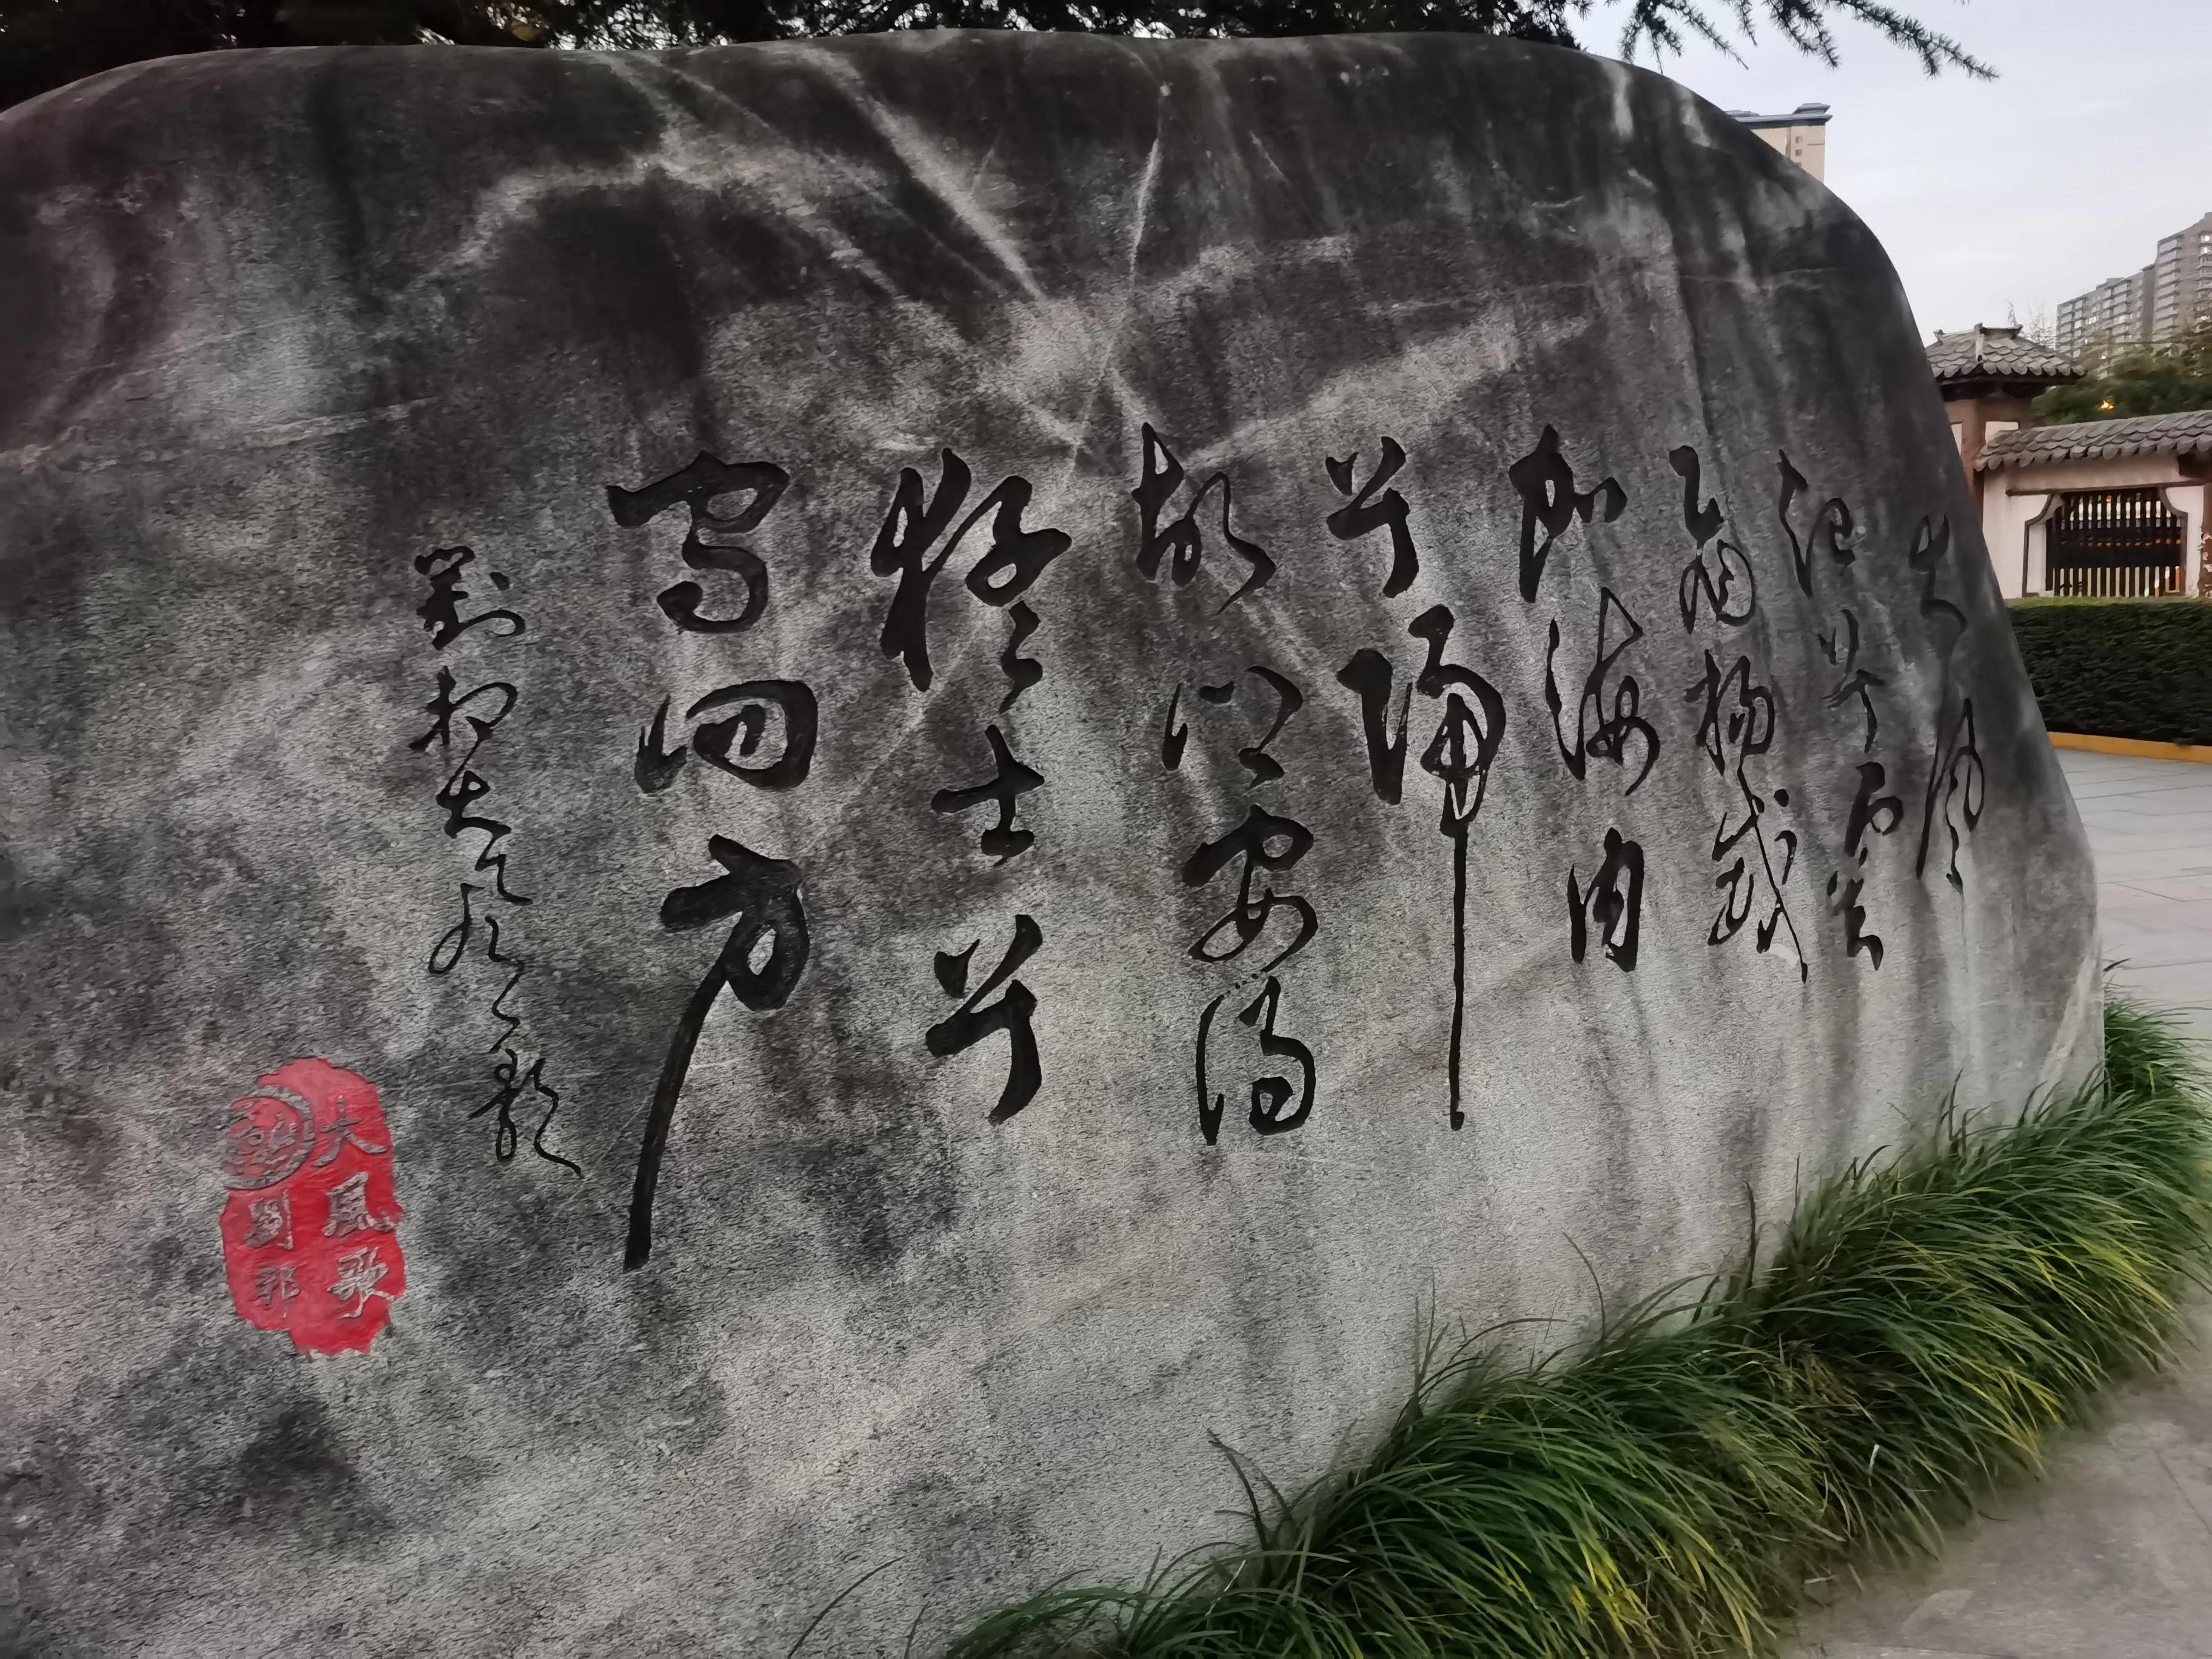 大風
起兮雲
飛揚威
加海内
兮歸
故鄉安得
猛士兮
守四方
劉邦大風歌
大風歌